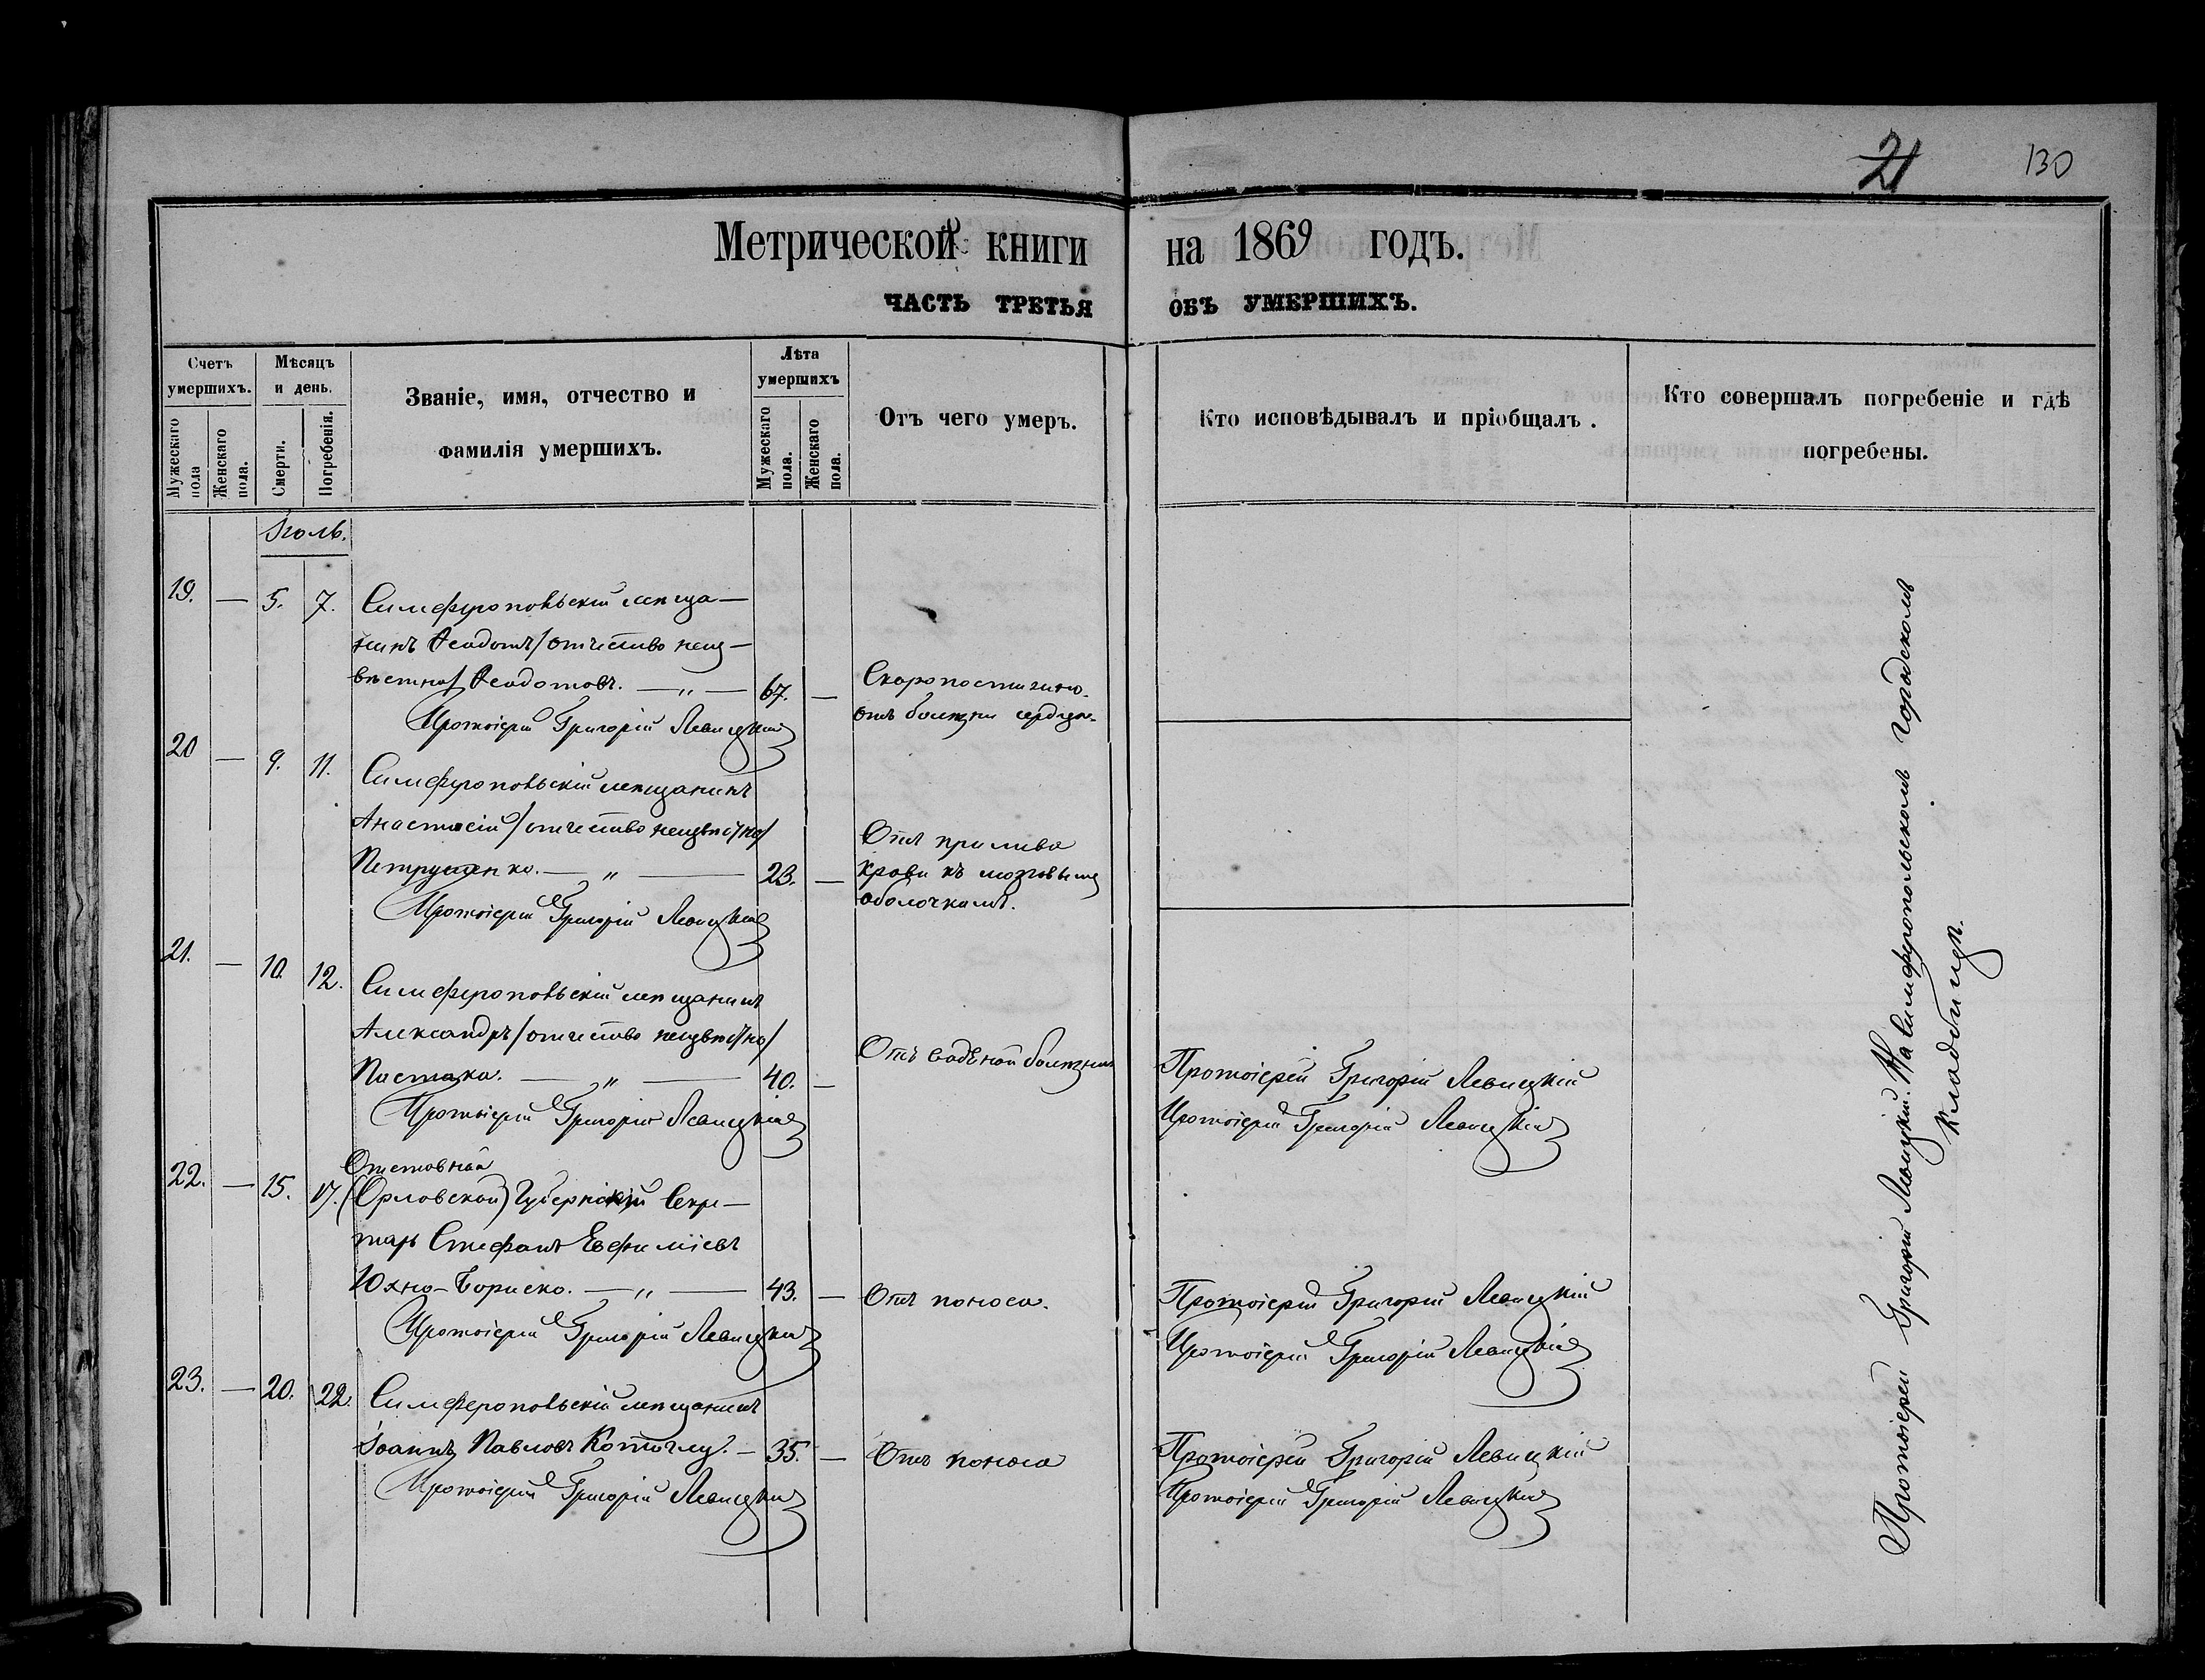 21 130
Метрической книги на 1869 годъ.
ЧАСТЬ ТРЕТЬЯ ОБЪ УМЕРШИХЪ.
Счетъ умершихъ.
Мужескаго пола
Женскаго пола.
Мѣсяцъ и день.
Смерти.
Погребенія.
Званіе, имя, отчество и
фамилія умершихъ.
Лѣта умершихъ
Мужескаго пола.
Женскаго пола.
Отъ чего умеръ.
Кто исповѣдывалъ и пріобщалъ.
Кто совершалъ погребеніе и гдѣ
погребены.
Іюль.
19. — 5. 7. Симферопольскій мѣща-
нинъ Ѳеодотъ /отчество неиз-
вѣстно/ Ѳеодотовъ. — „ — 67. — Скоропостижно
отъ болѣзни сердца.
Протоіерей Григорій Левицкій
20 — 9. 11. Симферопольскій мѣщанинъ
Анастасій /отчество неизвѣстно/
Петрушенко. — „ — 23. —
Отъ прилива
крови къ мозговымъ
оболочкамъ.
Протоіерей Григорій Левицкій
21. — 10. 12. Симферопольскій мѣщанинъ
Александръ /отчество неизвѣстно/
Пастака. — „ — 40. — Отъ водяной болѣзни
Протоіерей Григорій Левицкій
Протоіерей Григорій Левицкій
Протоіерей Григорій Левицкій
22. — 15. 17. Отставной
(Орловской) Губернскій Секре-
тарь Стефанъ Евфиміевъ
Юхно-Бориско. — „ — 43. — Отъ поноса.
Протоіерей Григорій Левицкій
Протоіерей Григорій Левицкій
Протоіерей Григорій Левицкій
23. — 20. 22. Симферопольскій мѣщанинъ
Іоаннъ Павловъ — 35. — Отъ поноса
Протоіерей Григорій Левицкій
Протоіерей Григорій Левицкій
Протоіерей Григорій Левицкій
Протоіерей Григорій Левицкій. На Симферопольскомъ городскомъ
кладбищѣ.